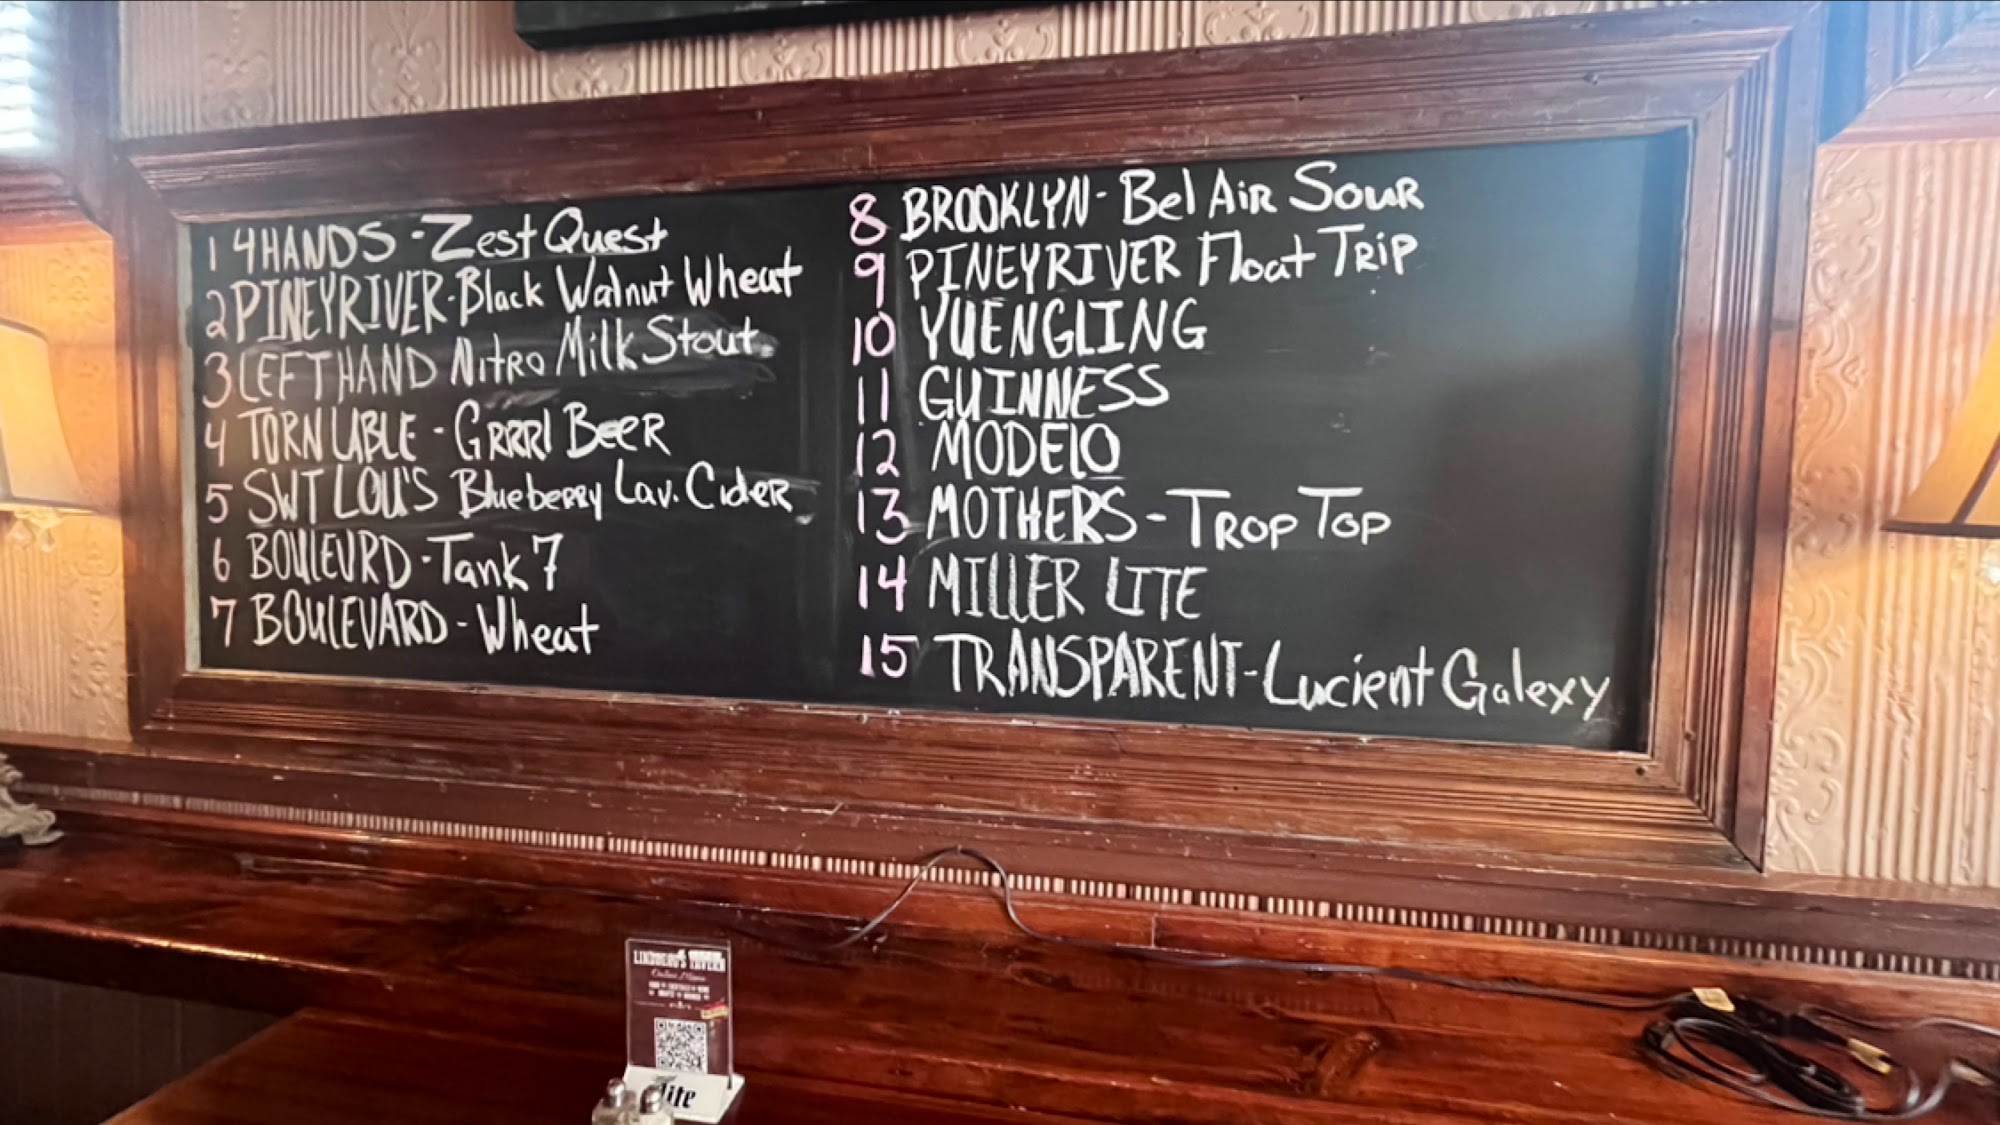 1 4HANDS - Zest Quest
2 PINEYRIVER - Black Walnut Wheat
3 LEFTHAND Nitro Milk Stout
4 TORN LABLE - GRRRl BeeR
5 SWT LOU'S Blueberry Lav. CideR
6 BOULEVRD - Tank 7
7 BOULEVARD - Wheat
8 BROOKLYN - Bel AiR SouR
9 PINEYRIVER Float TRip
10 YUENGLING
11 GUINNESS
12 MODELO
13 MOTHERS - TRop Top
14 MILLER LITE
15 TRANSPARENT - Lucient Galexy
LINDBERG'S TAVERN
lite